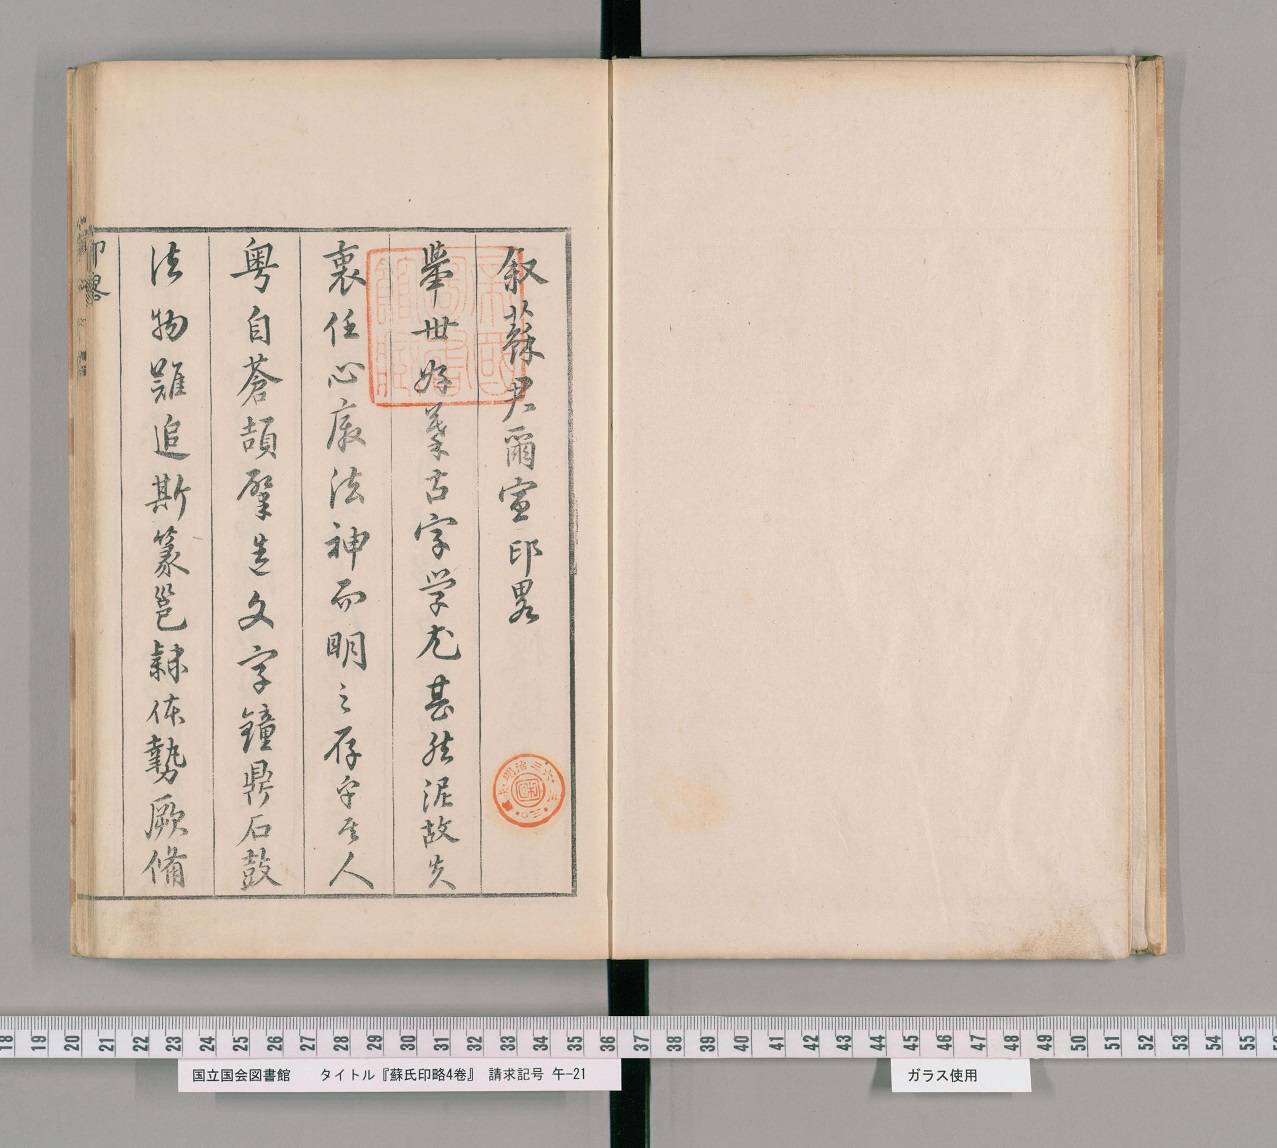 叙蘇尹爾宣印畧
舉世好古字学尤甚然泥故失
衷任心廢法神而明之存乎其人
粤自蒼頡肇造文字鐘鼎石鼓
法物難追斯篆邕隸体勢厥脩
印畧
帝國圖書館藏
18 19 20 21 22 23 24 25 26 27 28 29 30 31 32 33 34 35 36 37 38 39 40 41 42 43 44 45 46 47 48 49 50 51 52 53 54 55
国立国会図書館 タイトル『蘇氏印略4巻』 請求記号 午-21
ガラス使用